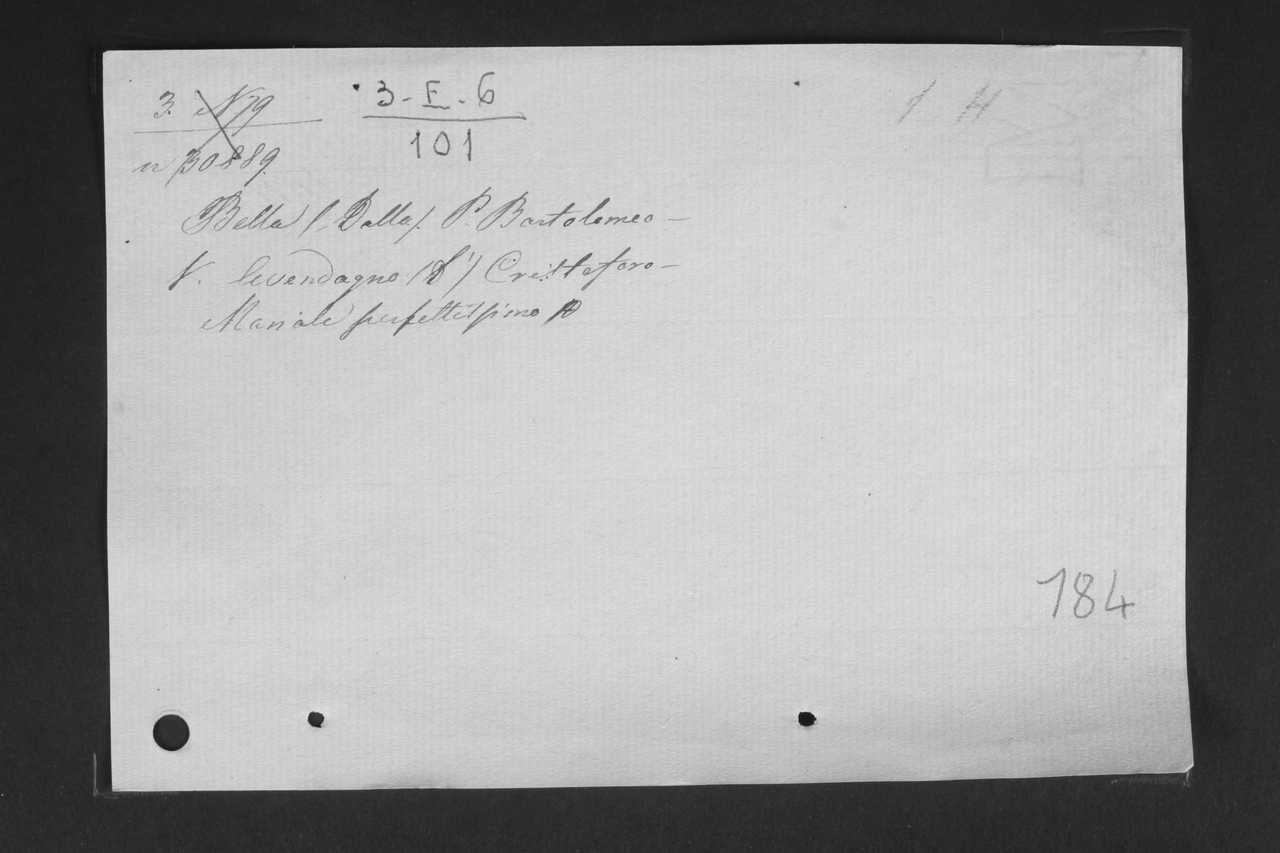 3. N 79
n 30889.
3-E-6
101
Bella (Dalla) P. Bartolomeo -
V. (d') Cristoforo -
Manale perfettissimo
184